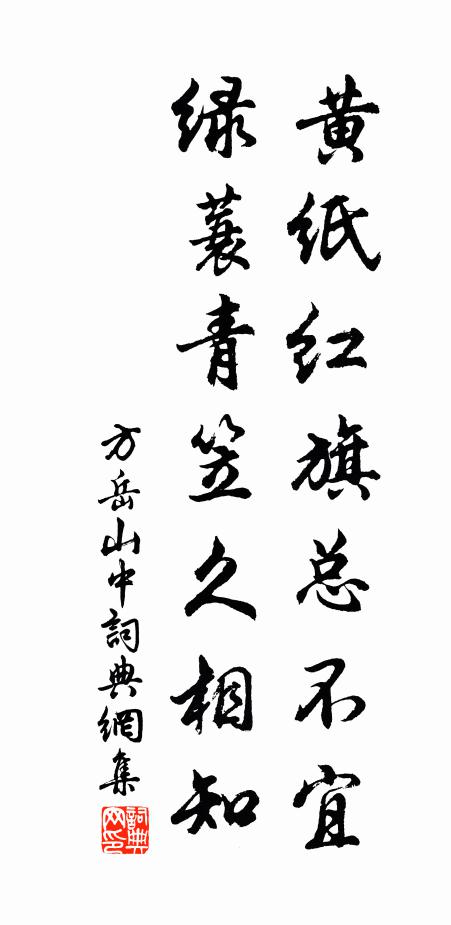 黄纸红旗总不宜
绿蓑青笠久相知
方岳山中詞典網集
詞典网印